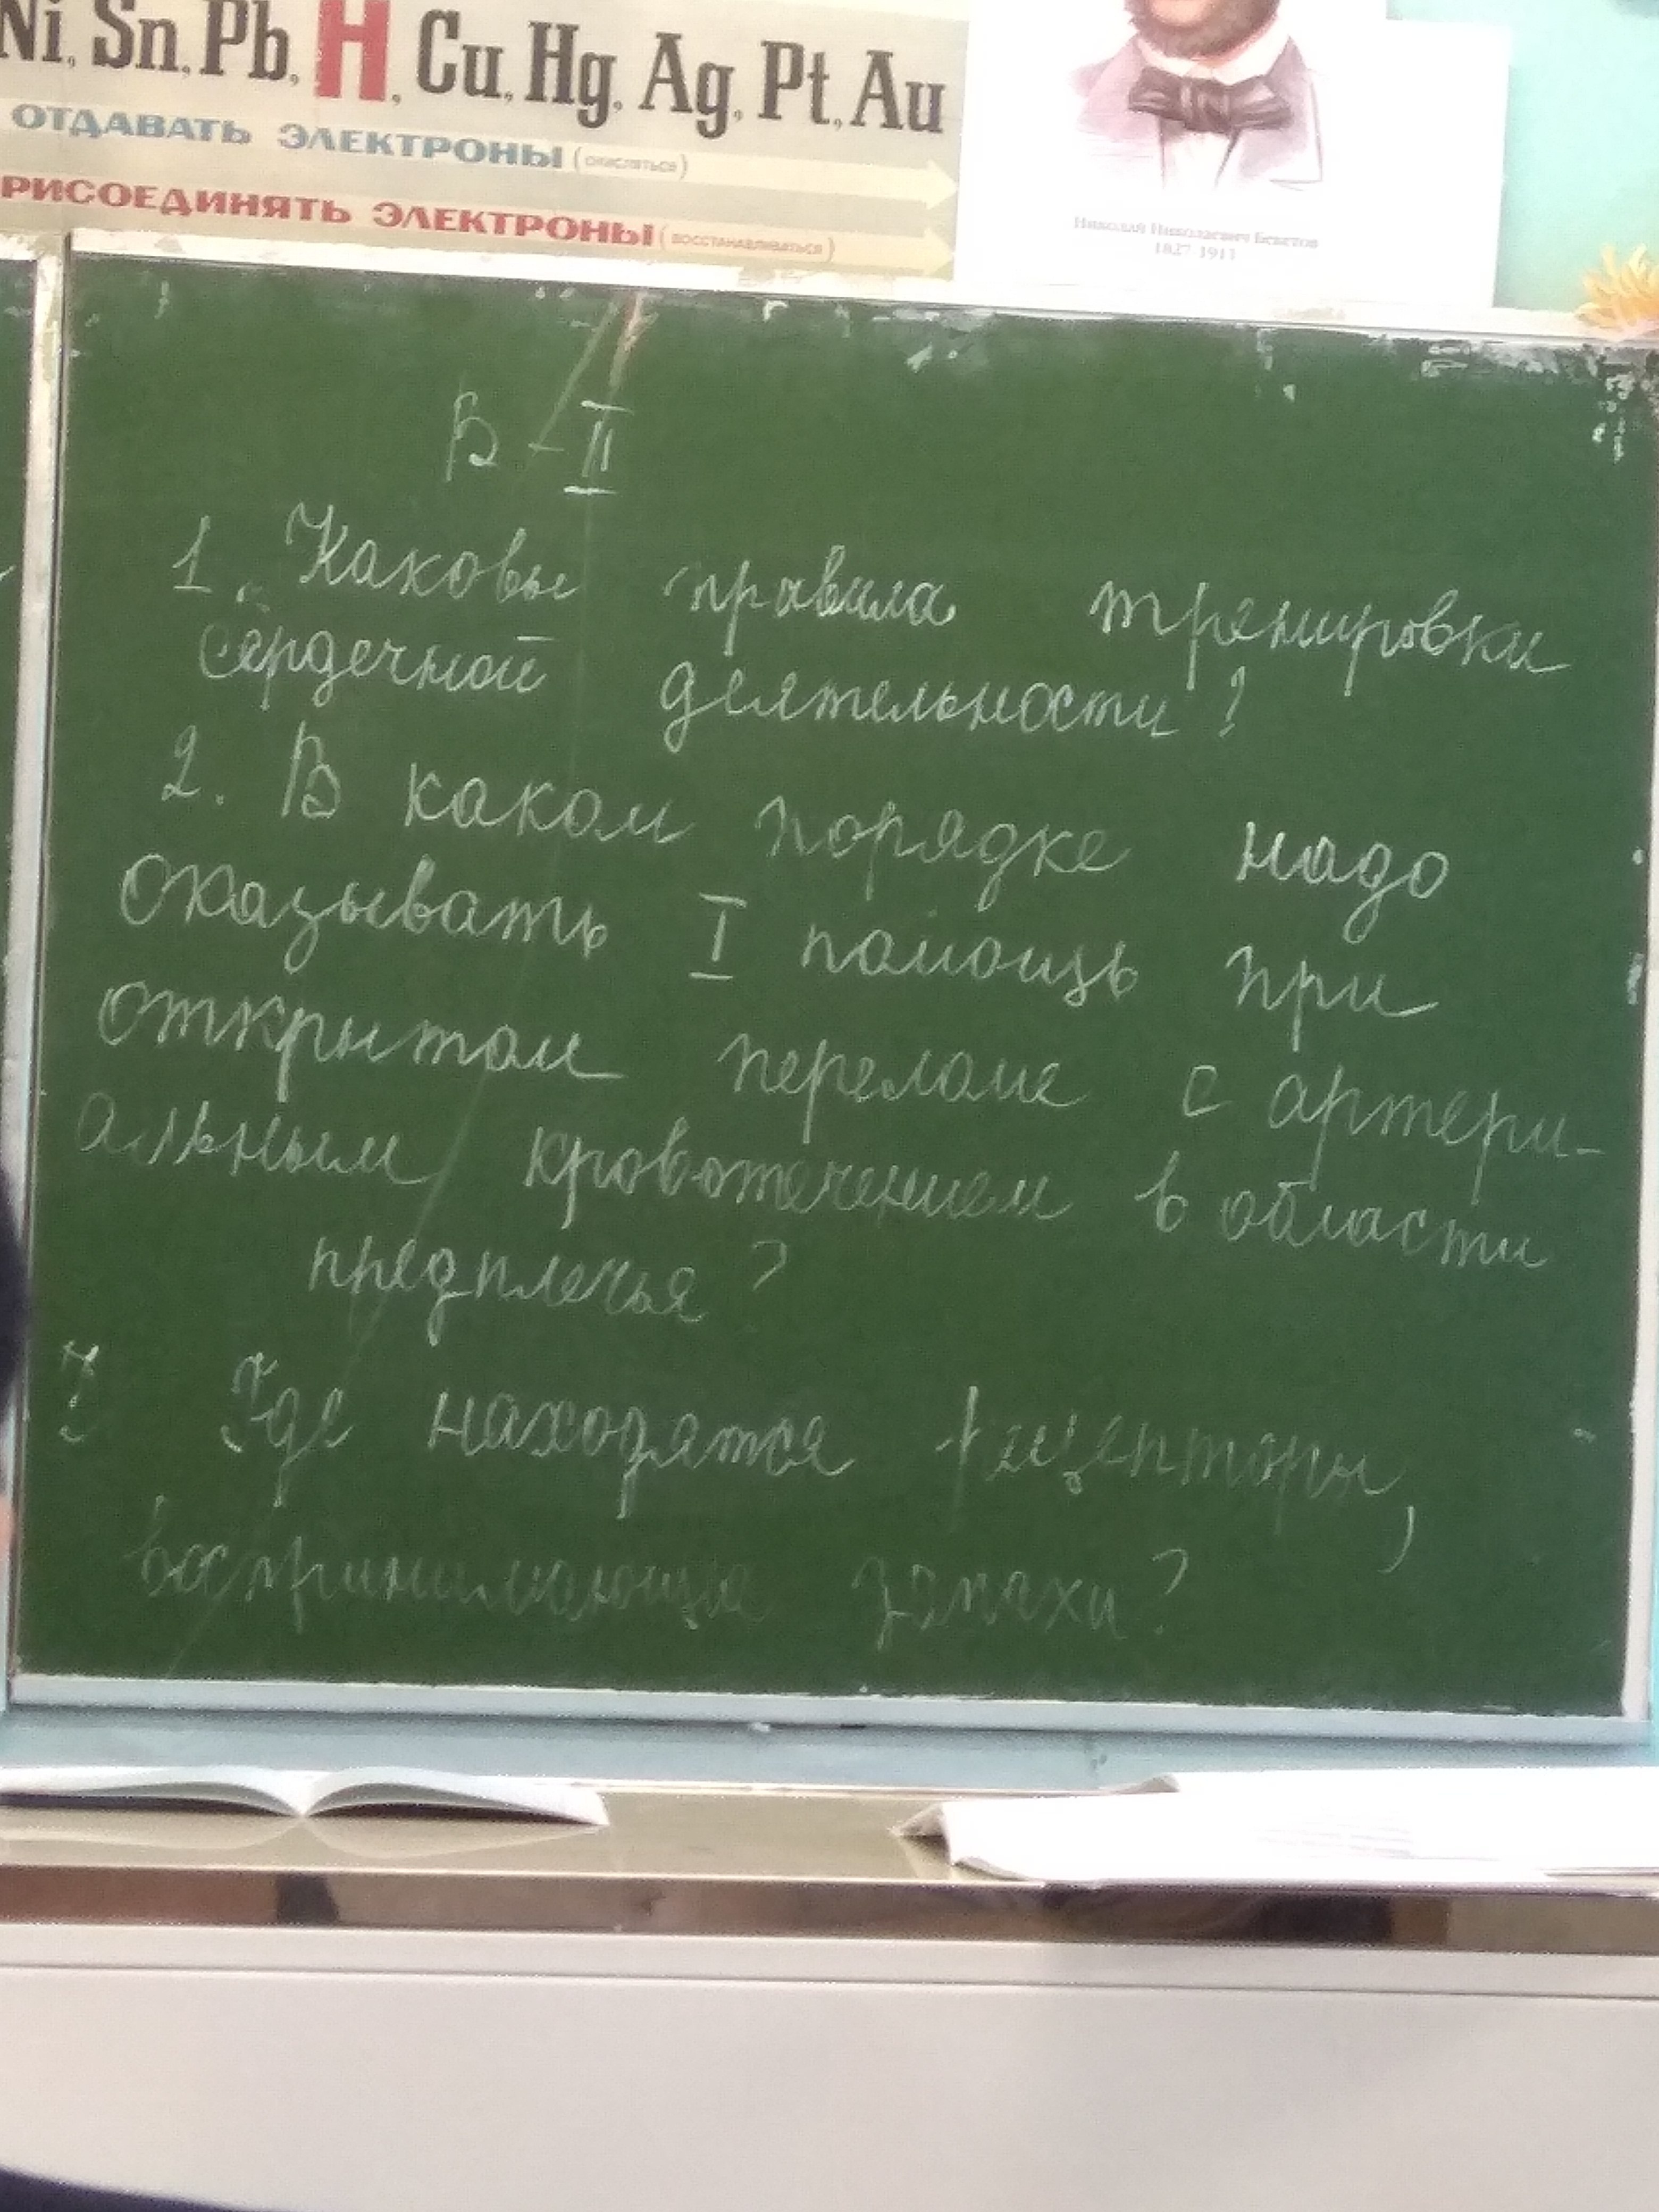 Ni, Sn, Pb, H, Cu, Hg, Ag, Pt, Au
ОТДАВАТЬ ЭЛЕКТРОНЫ (окисляться)
РИСОЕДИНЯТЬ ЭЛЕКТРОНЫ (восстанавливаться)
Николай Николаевич Бекетов
1827-1911
В - II
1. Каковы правила тренировки
сердечной деятельности?
2. В каком порядке надо
оказывать I помощь при
открытом переломе с артери-
альным кровотечением в области
предплечья?
3 Где находятся рецепторы,
воспринимающие запахи?